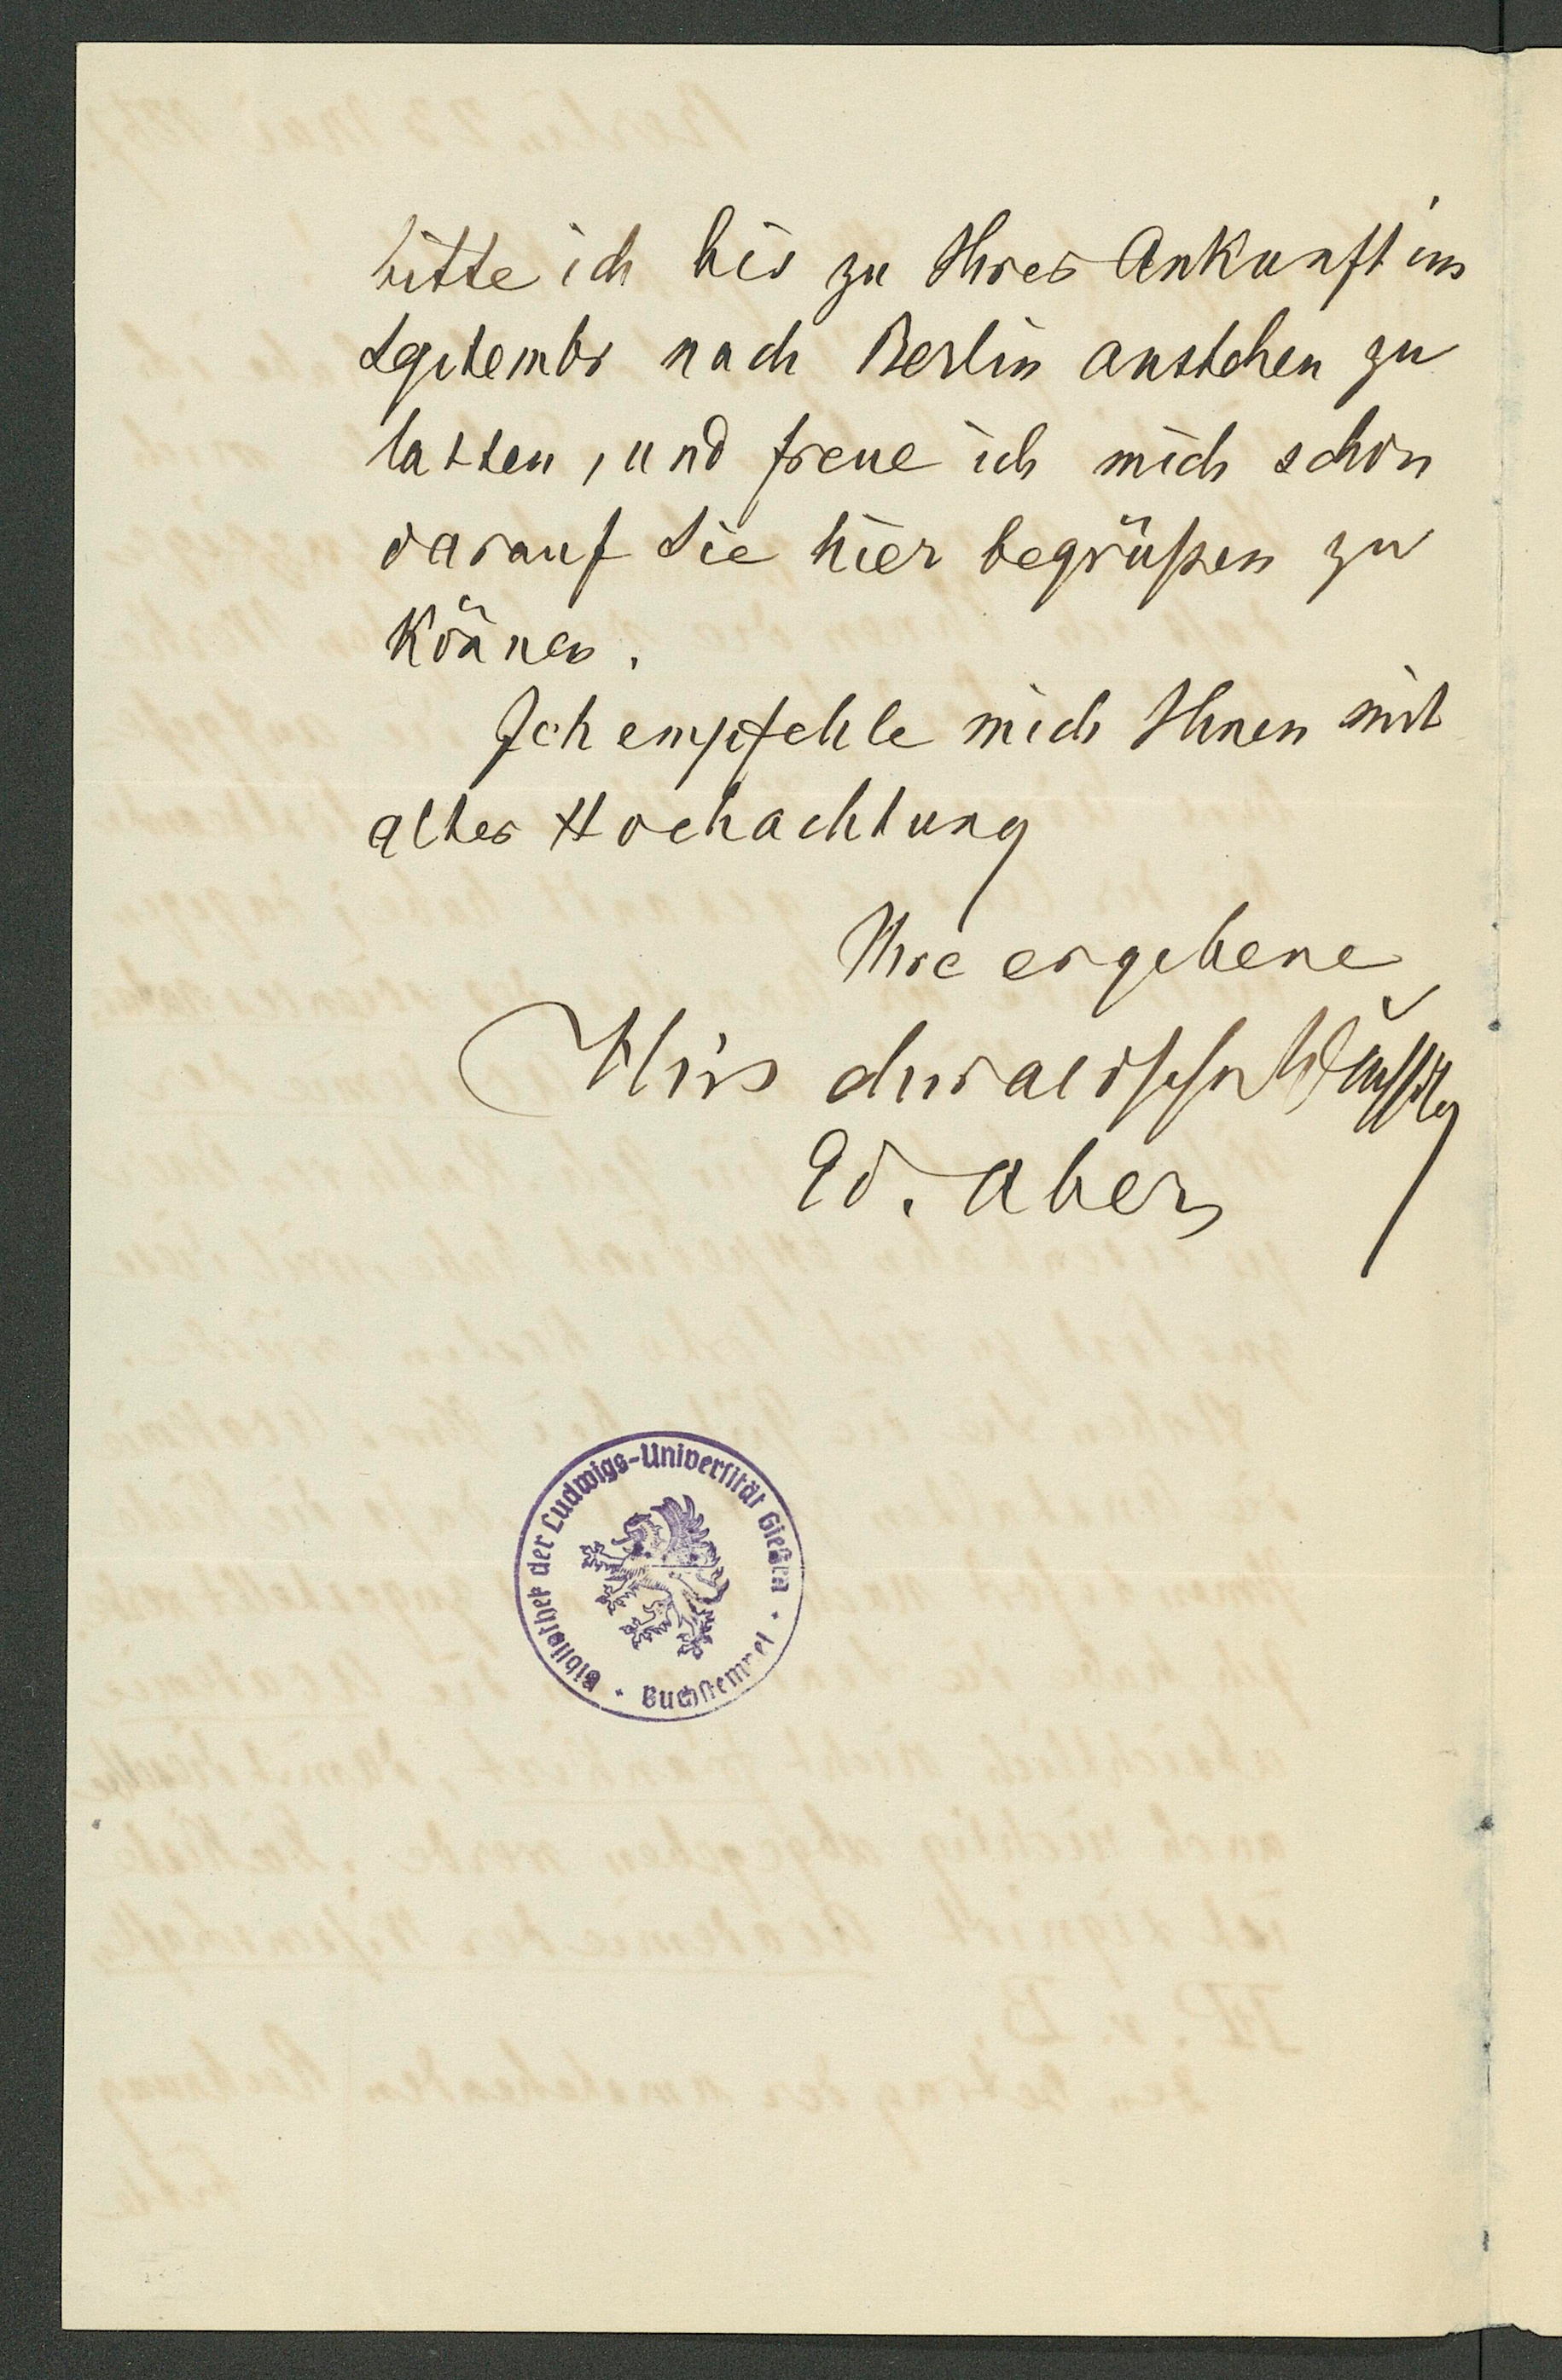 bitte ich bis zu Ihrer Ankunft im
September nach Berlin anstehen zu
lassen, und freue ich mich schon
darauf Sie hier begrüßen zu
können.
Ich empfehle mich Ihnen mit
alter Hochachtung
Ihre ergebene
Hirschwaldsche
Ed. Aber
Bibliothek der Ludwigs-Universität Gießen
Buchstempel